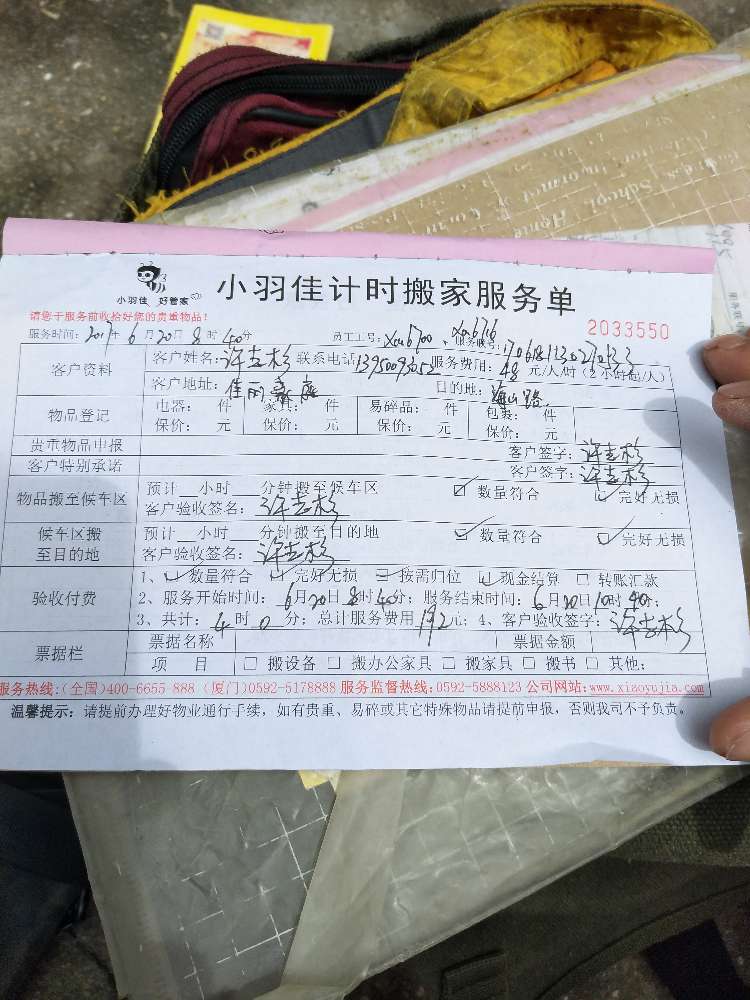 小羽佳 好管家
小羽佳计时搬家服务单
请您于服务前收拾好您的贵重物品!
2033550
服务时间: 2017年 6月20日 8时40分 员工工号: 服务账号:
客户资料 客户姓名: 许志杉 联系电话 服务费用: 48 元/人/时(2小时起/人)
客户地址: 佳丽豪庭 目的地: 海山路
物品登记 电器: 件 家具: 件 易碎品: 件 包裹: 件
保价: 元 保价: 元 保价: 元 保价: 元
贵重物品申报 客户签字: 许志杉
客户特别承诺 客户签字: 许志杉
物品搬至候车区 预计__小时__分钟搬至候车区 ☑ 数量符合 ☑ 完好无损
客户验收签名: 许志杉
候车区搬至目的地 预计__小时__分钟搬至目的地 ☑ 数量符合 ☑ 完好无损
客户验收签名: 许志杉
验收付费 1、☑ 数量符合 ☑ 完好无损 ☑ 按需归位 ☑ 现金结算 □ 转账汇款
2、服务开始时间: 6月20日8时40分; 服务结束时间: 6月20日10时40分;
3、共计: 4时 0分; 总计服务费用 192元; 4、客户验收签字: 许志杉
票据栏 票据名称 票据金额
项 目 □ 搬设备 □ 搬办公家具 □ 搬家具 □ 搬书 □ 其他:
服务热线:(全国)400-6655 888 (厦门)0592-5178888 服务监督热线:0592-5888123 公司网站:www.xiaoyujia.com
温馨提示: 请提前办理好物业通行手续,如有贵重、易碎或其它特殊物品请提前申报,否则我司不予负责。